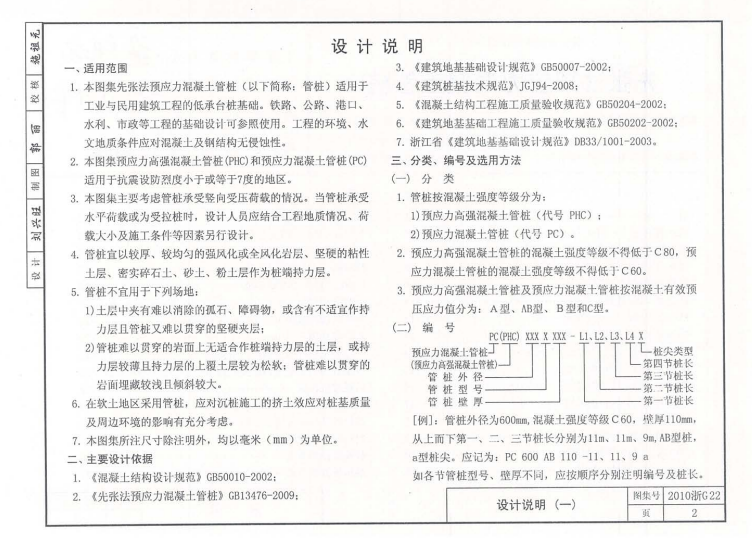 设计说明
一、适用范围
1. 本图集先张法预应力混凝土管桩（以下简称：管桩）适用于
工业与民用建筑工程的低承台桩基础。铁路、公路、港口、
水利、市政等工程的基础设计可参照使用。工程的环境、水
文地质条件应对混凝土及钢结构无侵蚀性。
2. 本图集预应力高强混凝土管桩(PHC)和预应力混凝土管桩(PC)
适用于抗震设防烈度小于或等于7度的地区。
3. 本图集主要考虑管桩承受竖向受压荷载的情况。当管桩承受
水平荷载或为受拉桩时，设计人员应结合工程地质情况、荷
载大小及施工条件等因素另行设计。
4. 管桩宜以较厚、较均匀的强风化或全风化岩层、坚硬的粘性
土层、密实碎石土、砂土、粉土层作为桩端持力层。
5. 管桩不宜用于下列场地：
1)土层中夹有难以消除的孤石、障碍物，或含有不适宜作持
力层且管桩又难以贯穿的坚硬夹层；
2)管桩难以贯穿的岩面上无适合作桩端持力层的土层，或持
力层较薄且持力层的上覆土层较为松软；管桩难以贯穿的
岩面埋藏较浅且倾斜较大。
6. 在软土地区采用管桩，应对沉桩施工的挤土效应对桩基质量
及周边环境的影响有充分考虑。
7. 本图集所注尺寸除注明外，均以毫米（mm）为单位。
二、主要设计依据
1. 《混凝土结构设计规范》GB50010-2002；
2. 《先张法预应力混凝土管桩》GB13476-2009；
3. 《建筑地基基础设计规范》GB50007-2002；
4. 《建筑桩基技术规范》JGJ94-2008；
5. 《混凝土结构工程施工质量验收规范》GB50204-2002；
6. 《建筑地基基础工程施工质量验收规范》GB50202-2002；
7. 浙江省《建筑地基基础设计规范》DB33/1001-2003。
三、分类、编号及选用方法
(一) 分 类
1. 管桩按混凝土强度等级分为：
1)预应力高强混凝土管桩（代号 PHC）；
2)预应力混凝土管桩（代号 PC）。
2. 预应力高强混凝土管桩的混凝土强度等级不得低于C80，预
应力混凝土管桩的混凝土强度等级不得低于C60。
3. 预应力高强混凝土管桩及预应力混凝土管桩按混凝土有效预
压应力值分为：A型、AB型、B型和C型。
(二) 编 号
PC(PHC) XXX X XXX - L1、L2、L3、L4 X
预应力混凝土管桩 桩尖类型
(预应力高强混凝土管桩) 第四节桩长
管桩外径 第三节桩长
管桩型号 第二节桩长
管桩壁厚 第一节桩长
[例]：管桩外径为600mm,混凝土强度等级C60，壁厚110mm,
从上而下第一、二、三节桩长分别为11m、11m、9m,AB型桩，
a型桩尖。应记为：PC 600 AB 110 -11、11、9 a
如各节管桩型号、壁厚不同，应按顺序分别注明编号及桩长。
设计说明（一）
图集号 2010浙G22
页 2
施祖元
校核
郭丽
制图
刘兴旺
设计